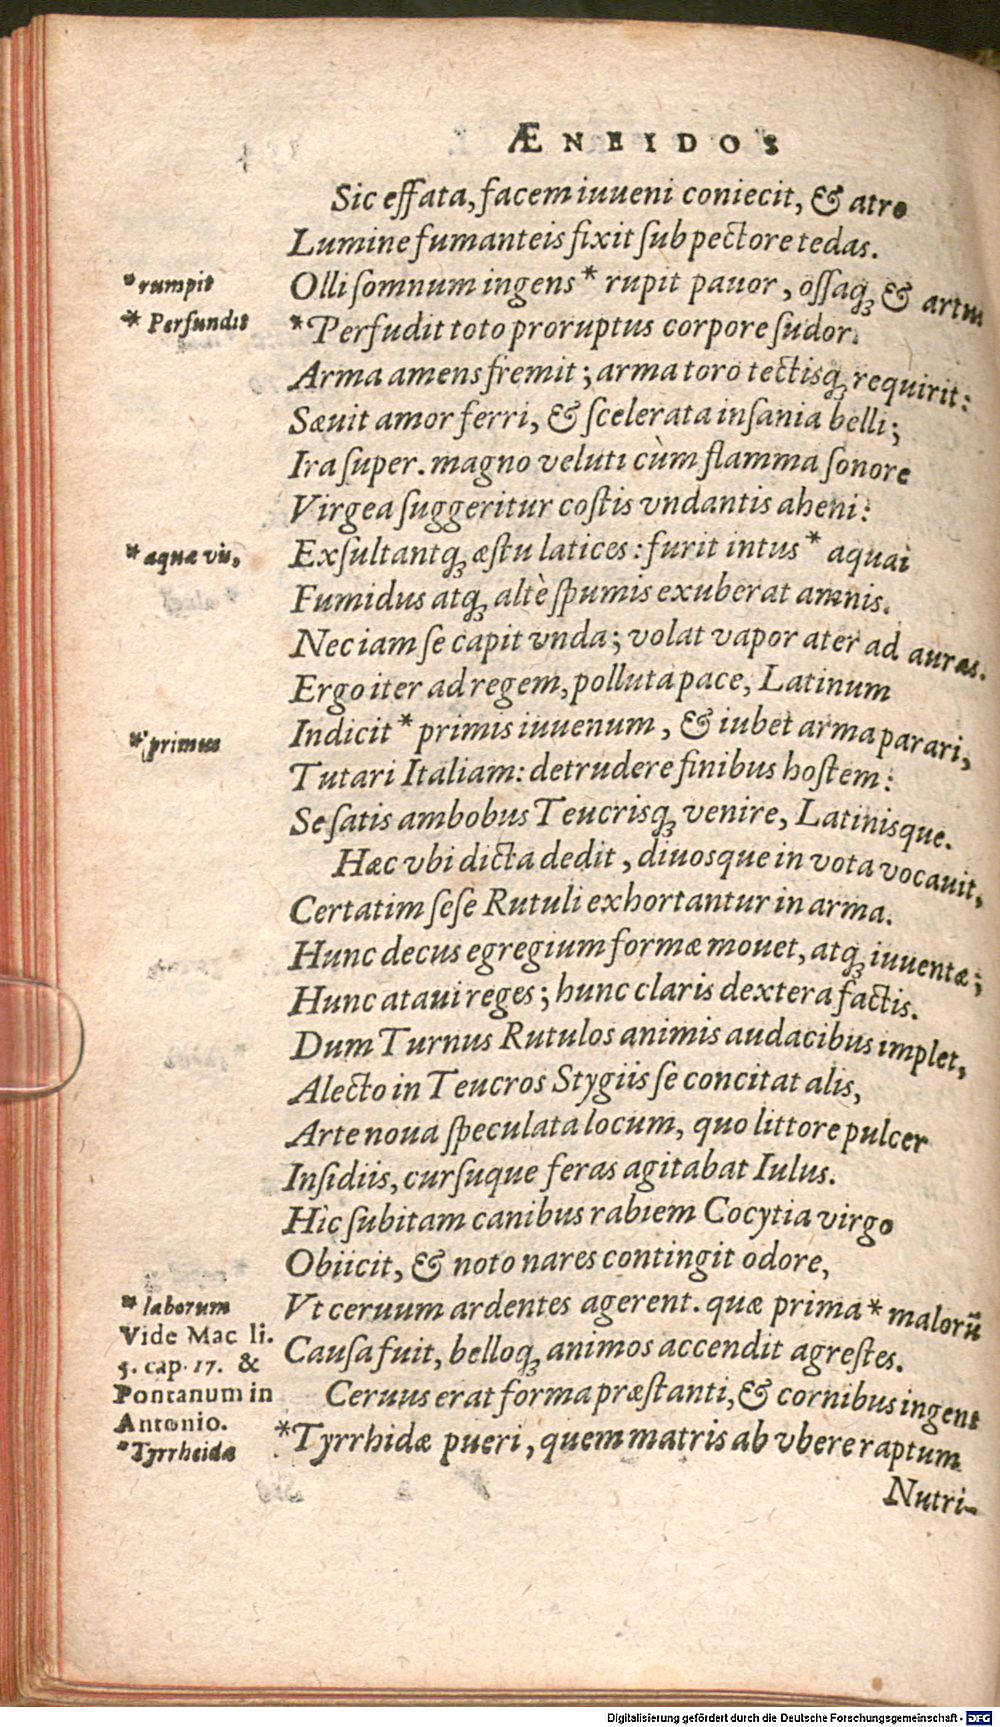 ÆNEIDOS
Sic effata, facem iuueni coniecit, & atro
Lumine fumanteis fixit sub pectore tedas.
*rumpit
Olli somnum ingens* rupit pauor, ossaqꝫ & artus
* Perfundit
*Perfudit toto proruptus corpore sudor.
Arma amens fremit; arma toro tectisqꝫ requirit:
Sæuit amor ferri, & scelerata insania belli;
Ira super. magno veluti cùm flamma sonore
Virgea suggeritur costis vndantis aheni:
* aquæ vis,
Exsultantqꝫ æstu latices: furit intus* aquai
Fumidus atqꝫ altè spumis exuberat amnis.
Nec iam se capit vnda; volat vapor ater ad auras.
Ergo iter ad regem, polluta pace, Latinum
* primus
Indicit* primis iuuenum, & iubet arma parari,
Tutari Italiam: detrudere finibus hostem:
Se satis ambobus Teucrisqꝫ venire, Latinisque.
Hæc vbi dicta dedit, diuosque in vota vocauit,
Certatim sese Rutuli exhortantur in arma.
Hunc decus egregium formæ mouet, atqꝫ iuuentæ;
Hunc ataui reges; hunc claris dextera factis.
Dum Turnus Rutulos animis audacibus implet,
Alecto in Teucros Stygiis se concitat alis,
Arte noua speculata locum, quo littore pulcer
Insidiis, cursuque feras agitabat Iulus.
Hìc subitam canibus rabiem Cocytia virgo
Obiicit, & noto nares contingit odore,
* laborum
Vt ceruum ardentes agerent. quæ prima* malorũ
Vide Mac li.
5. cap. 17. &
Pontanum in
Antonio.
Causa fuit, belloqꝫ animos accendit agrestes.
Ceruus erat forma præstanti, & cornibus ingens
*Tyrrheidæ
*Tyrrhidæ pueri, quem matris ab vbere raptum
Nutri-
Digitalisierung gefördert durch die Deutsche Forschungsgemeinschaft - DFG